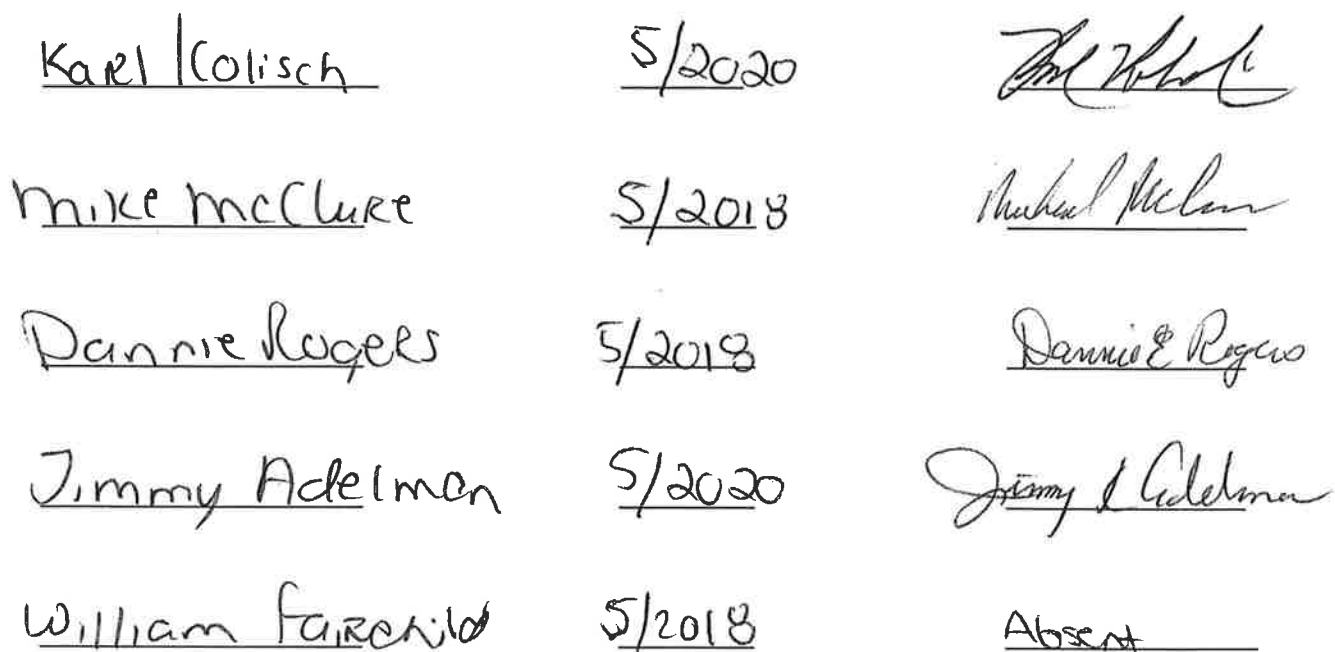 Karl Kolisch 5/2020
Mike McClure 5/2018 Michael McClure
Dannie Rogers 5/2018 Dannie E Rogers
Jimmy Adelman 5/2020 Jimmy Adelman
William Fairchild 5/2018 Absent